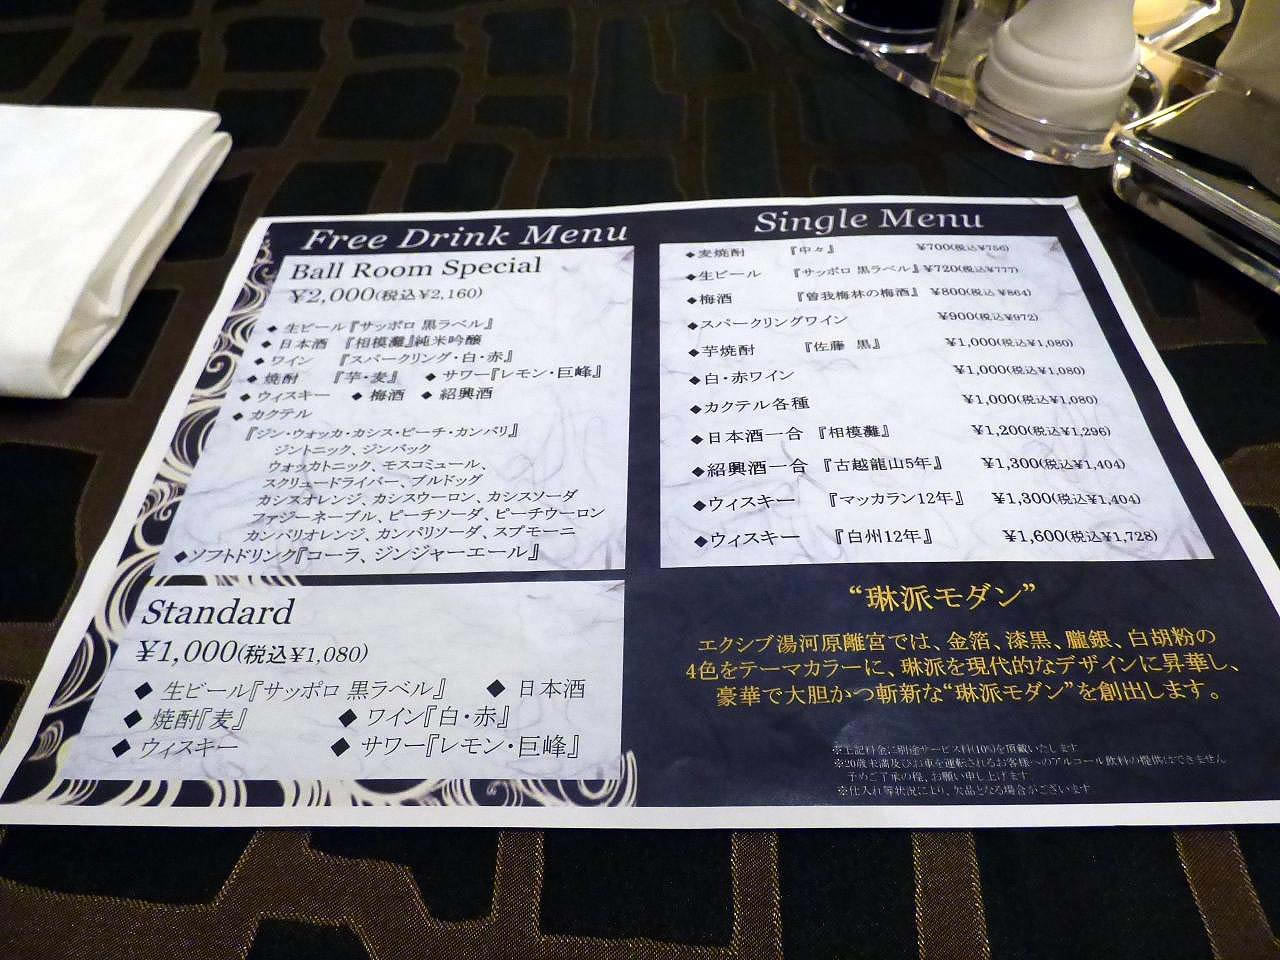 Free Drink Menu
Ball Room Special
¥2,000(税込¥2,160)
◆ 生ビール『サッポロ 黒ラベル』
◆ 日本酒 『相模灘』純米吟醸
◆ ワイン 『スパークリング・白・赤』
◆ 焼酎 『芋・麦』 ◆ サワー『レモン・巨峰』
◆ ウィスキー ◆ 梅酒 ◆ 紹興酒
◆ カクテル
『ジン・ウォッカ・カシス・ピーチ・カンパリ』
ジントニック、ジンバック
ウォッカトニック、モスコミュール、
スクリュードライバー、ブルドッグ
カシスオレンジ、カシスウーロン、カシスソーダ
ファジーネーブル、ピーチソーダ、ピーチウーロン
カンパリオレンジ、カンパリソーダ、スプモーニ
◆ソフトドリンク『コーラ、ジンジャーエール』
Standard
¥1,000(税込¥1,080)
◆ 生ビール『サッポロ 黒ラベル』 ◆ 日本酒
◆ 焼酎『麦』 ◆ ワイン『白・赤』
◆ ウィスキー ◆ サワー『レモン・巨峰』
Single Menu
◆麦焼酎 『中々』 ¥700(税込¥756)
◆生ビール 『サッポロ 黒ラベル』 ¥720(税込¥777)
◆梅酒 『曽我梅林の梅酒』 ¥800(税込 ¥864)
◆スパークリングワイン ¥900(税込¥972)
◆芋焼酎 『佐藤 黒』 ¥1,000(税込¥1,080)
◆白・赤ワイン ¥1,000(税込¥1,080)
◆カクテル各種 ¥1,000(税込¥1,080)
◆日本酒一合 『相模灘』 ¥1,200(税込¥1,296)
◆紹興酒一合 『古越龍山5年』 ¥1,300(税込¥1,404)
◆ウィスキー 『マッカラン12年』 ¥1,300(税込¥1,404)
◆ウィスキー 『白州12年』 ¥1,600(税込¥1,728)
“琳派モダン”
エクシブ湯河原離宮では、金箔、漆黒、朧銀、白胡粉の
4色をテーマカラーに、琳派を現代的なデザインに昇華し、
豪華で大胆かつ斬新な“琳派モダン”を創出します。
※上記料金に別途サービス料(10%)を頂戴いたします
※20歳未満及びお車を運転されるお客様へのアルコール飲料の提供はできません
予めご了承の程、お願い申し上げます
※仕入れ等状況により、欠品となる場合がございます